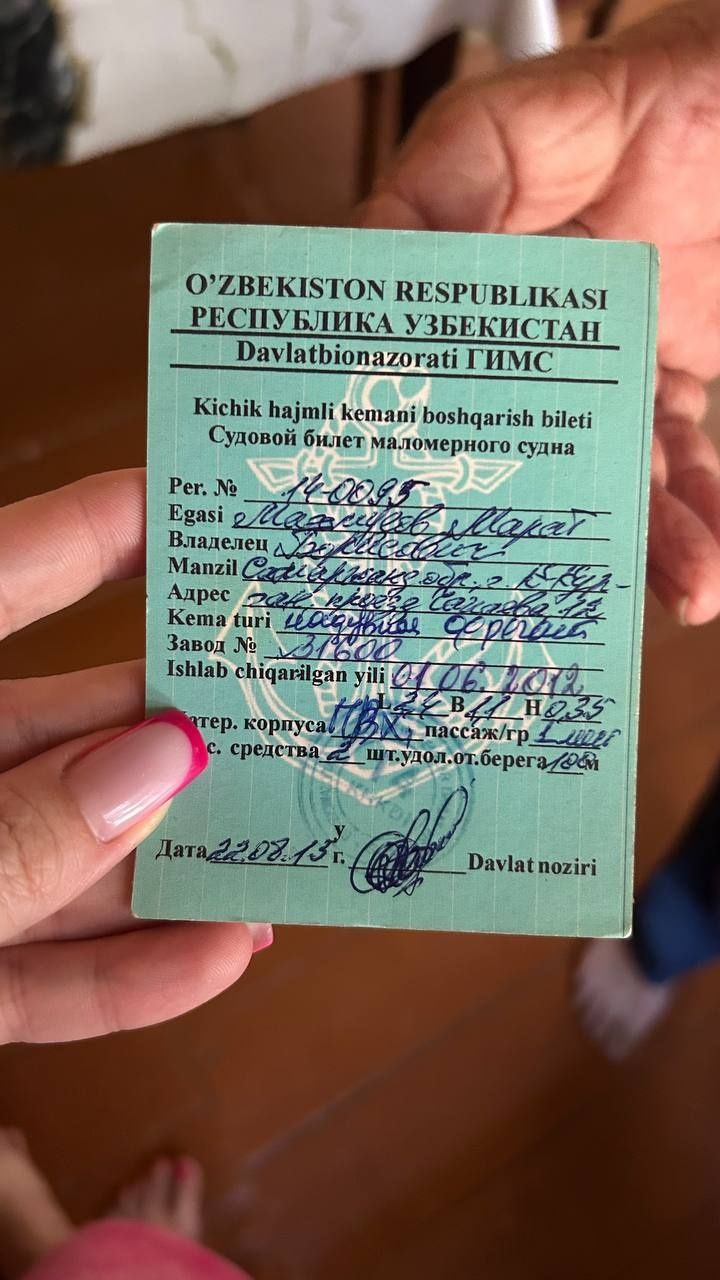 O'ZBEKISTON RESPUBLIKASI
РЕСПУБЛИКА УЗБЕКИСТАН
Davlatbionazorati ГИМС
Kichik hajmli kemani boshqarish bileti
Судовой билет маломерного судна
Рег. № 14-0095
Egasi Марат
Владелец Борисович
Manzil Самарканд обр. г. К-Кур-
Адрес ган, проезд Чапаева
Kema turi надувная
Завод № 31600
Ishlab chiqarilgan yili 01 06. 2012
L 2,4 В 1,1 Н 0,35
матер. корпуса ПВХ, пассаж/гр 1
с. средства 2 шт.удол.от.берега 100 м
У
Дата 22.08.13 г. Davlat noziri